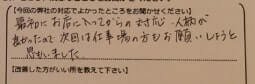 【今回の弊社の対応でよかったところをお聞かせください】
最初にお店に入ってからの対応、人柄が
良かったので次回は仕事場の方もお願いしようと
思いました
【改善した方がいい所を教えて下さい】